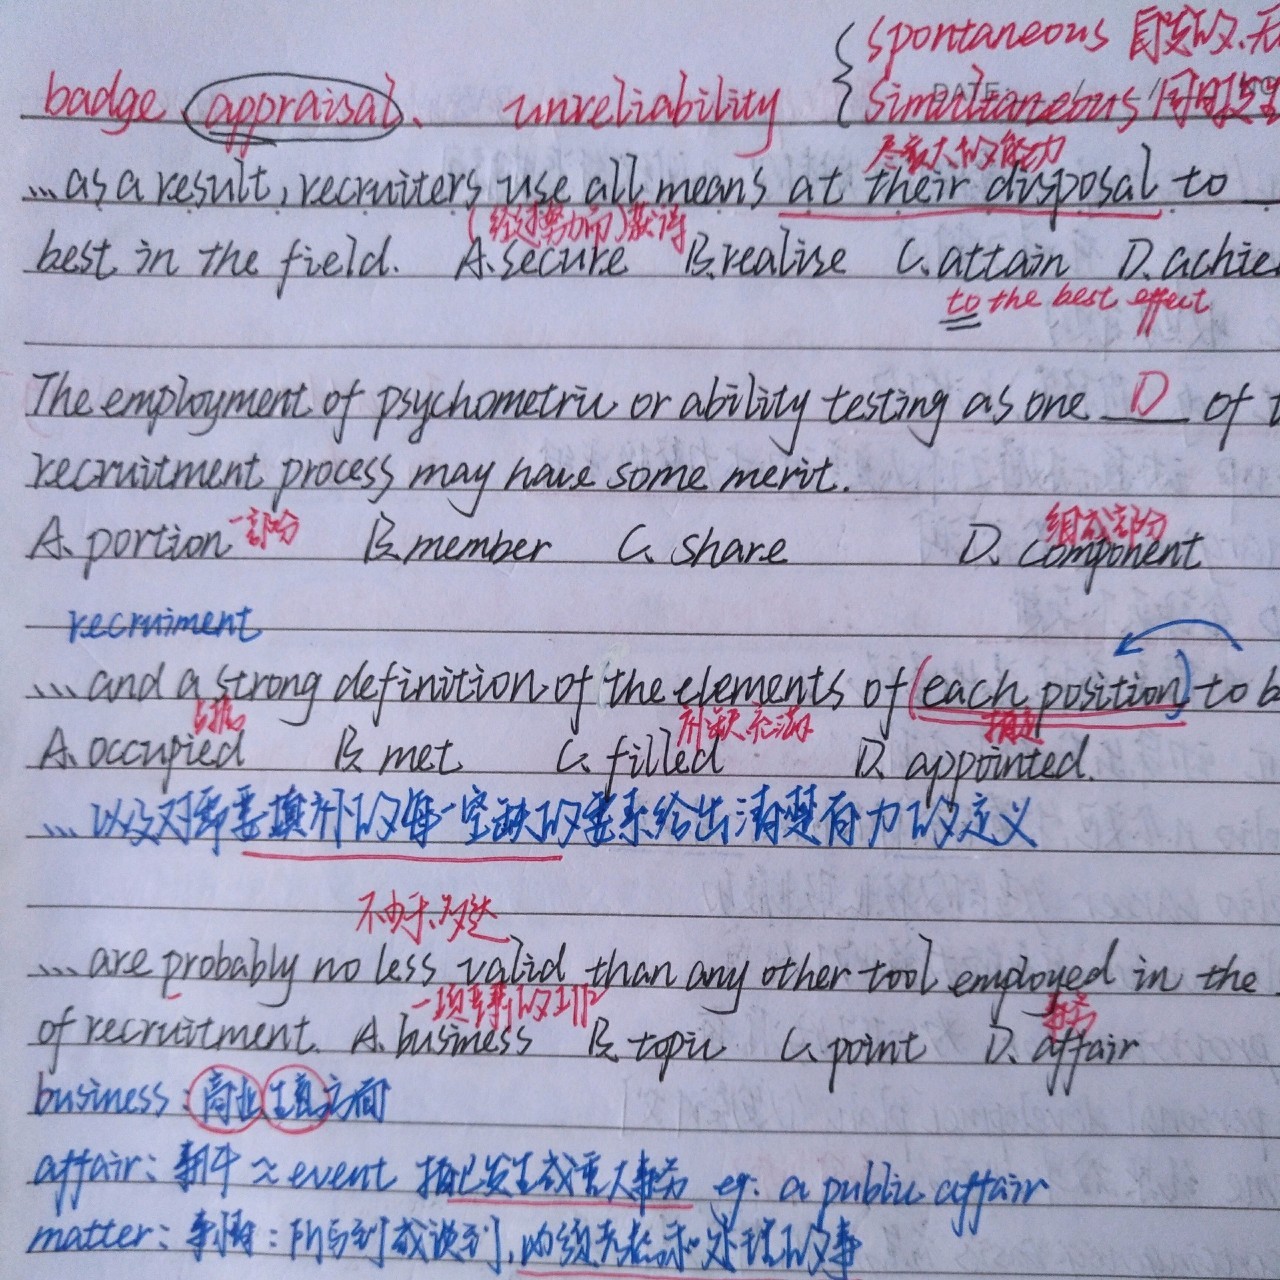 spontaneous 自发的、无
badge appraisal、 unreliability simultaneous 同时发生
尽最大的能力
...as a result, recruiters use all means at their disposal to
(经过努力而)获得
best in the field. A.secure B.realise C.attain D.achie
to the best effect
The employment of psychometric or ability testing as one D of t
recruitment process may have some merit.
一部分 组成部分
A.portion B.member C.share D.component
recruiment
...and a strong definition of the elements of (each position) to b
占据 补缺、充满
A.occupied B.met C.filled D.appointed.
...以及对需要填补的每一空缺的要素给出清楚有力的定义
不少于、不逊
...are probably no less valid than any other tool employed in the
事务
of recruitment. A.business B.topic C.point D.affair
business:商业
affair:事件≈event 指已发生或重大事务 eg: a public affair
matter:事情:所写到或谈到,必须考虑和处理的事